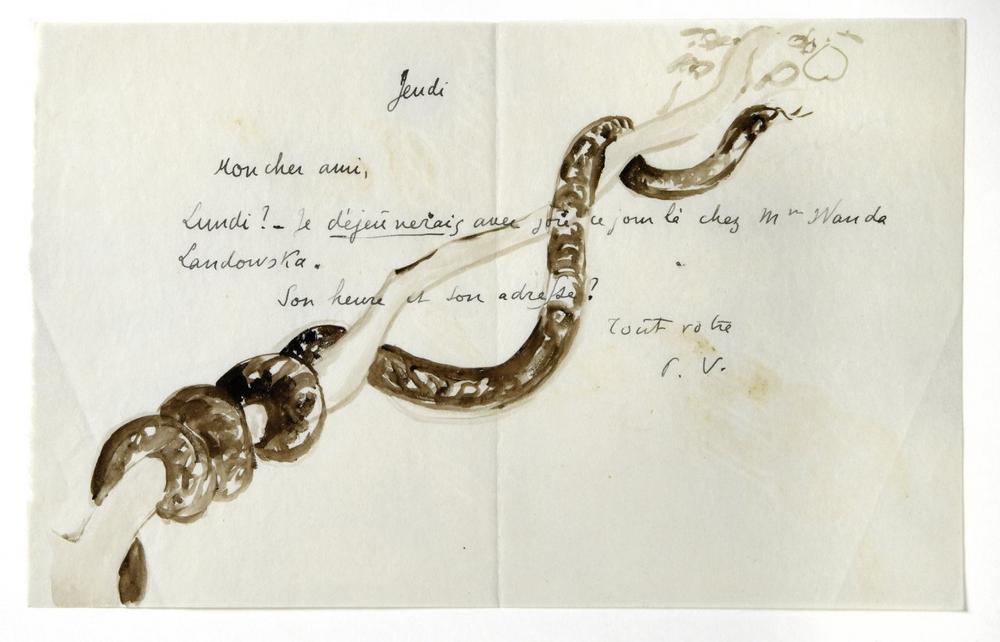 Jeudi
Mon cher ami,
Lundi? – Je déjeûnerais avec joie ce jour là chez Mme Wanda
Landowska.
Son heure et son adresse?
Tout votre
P. V.